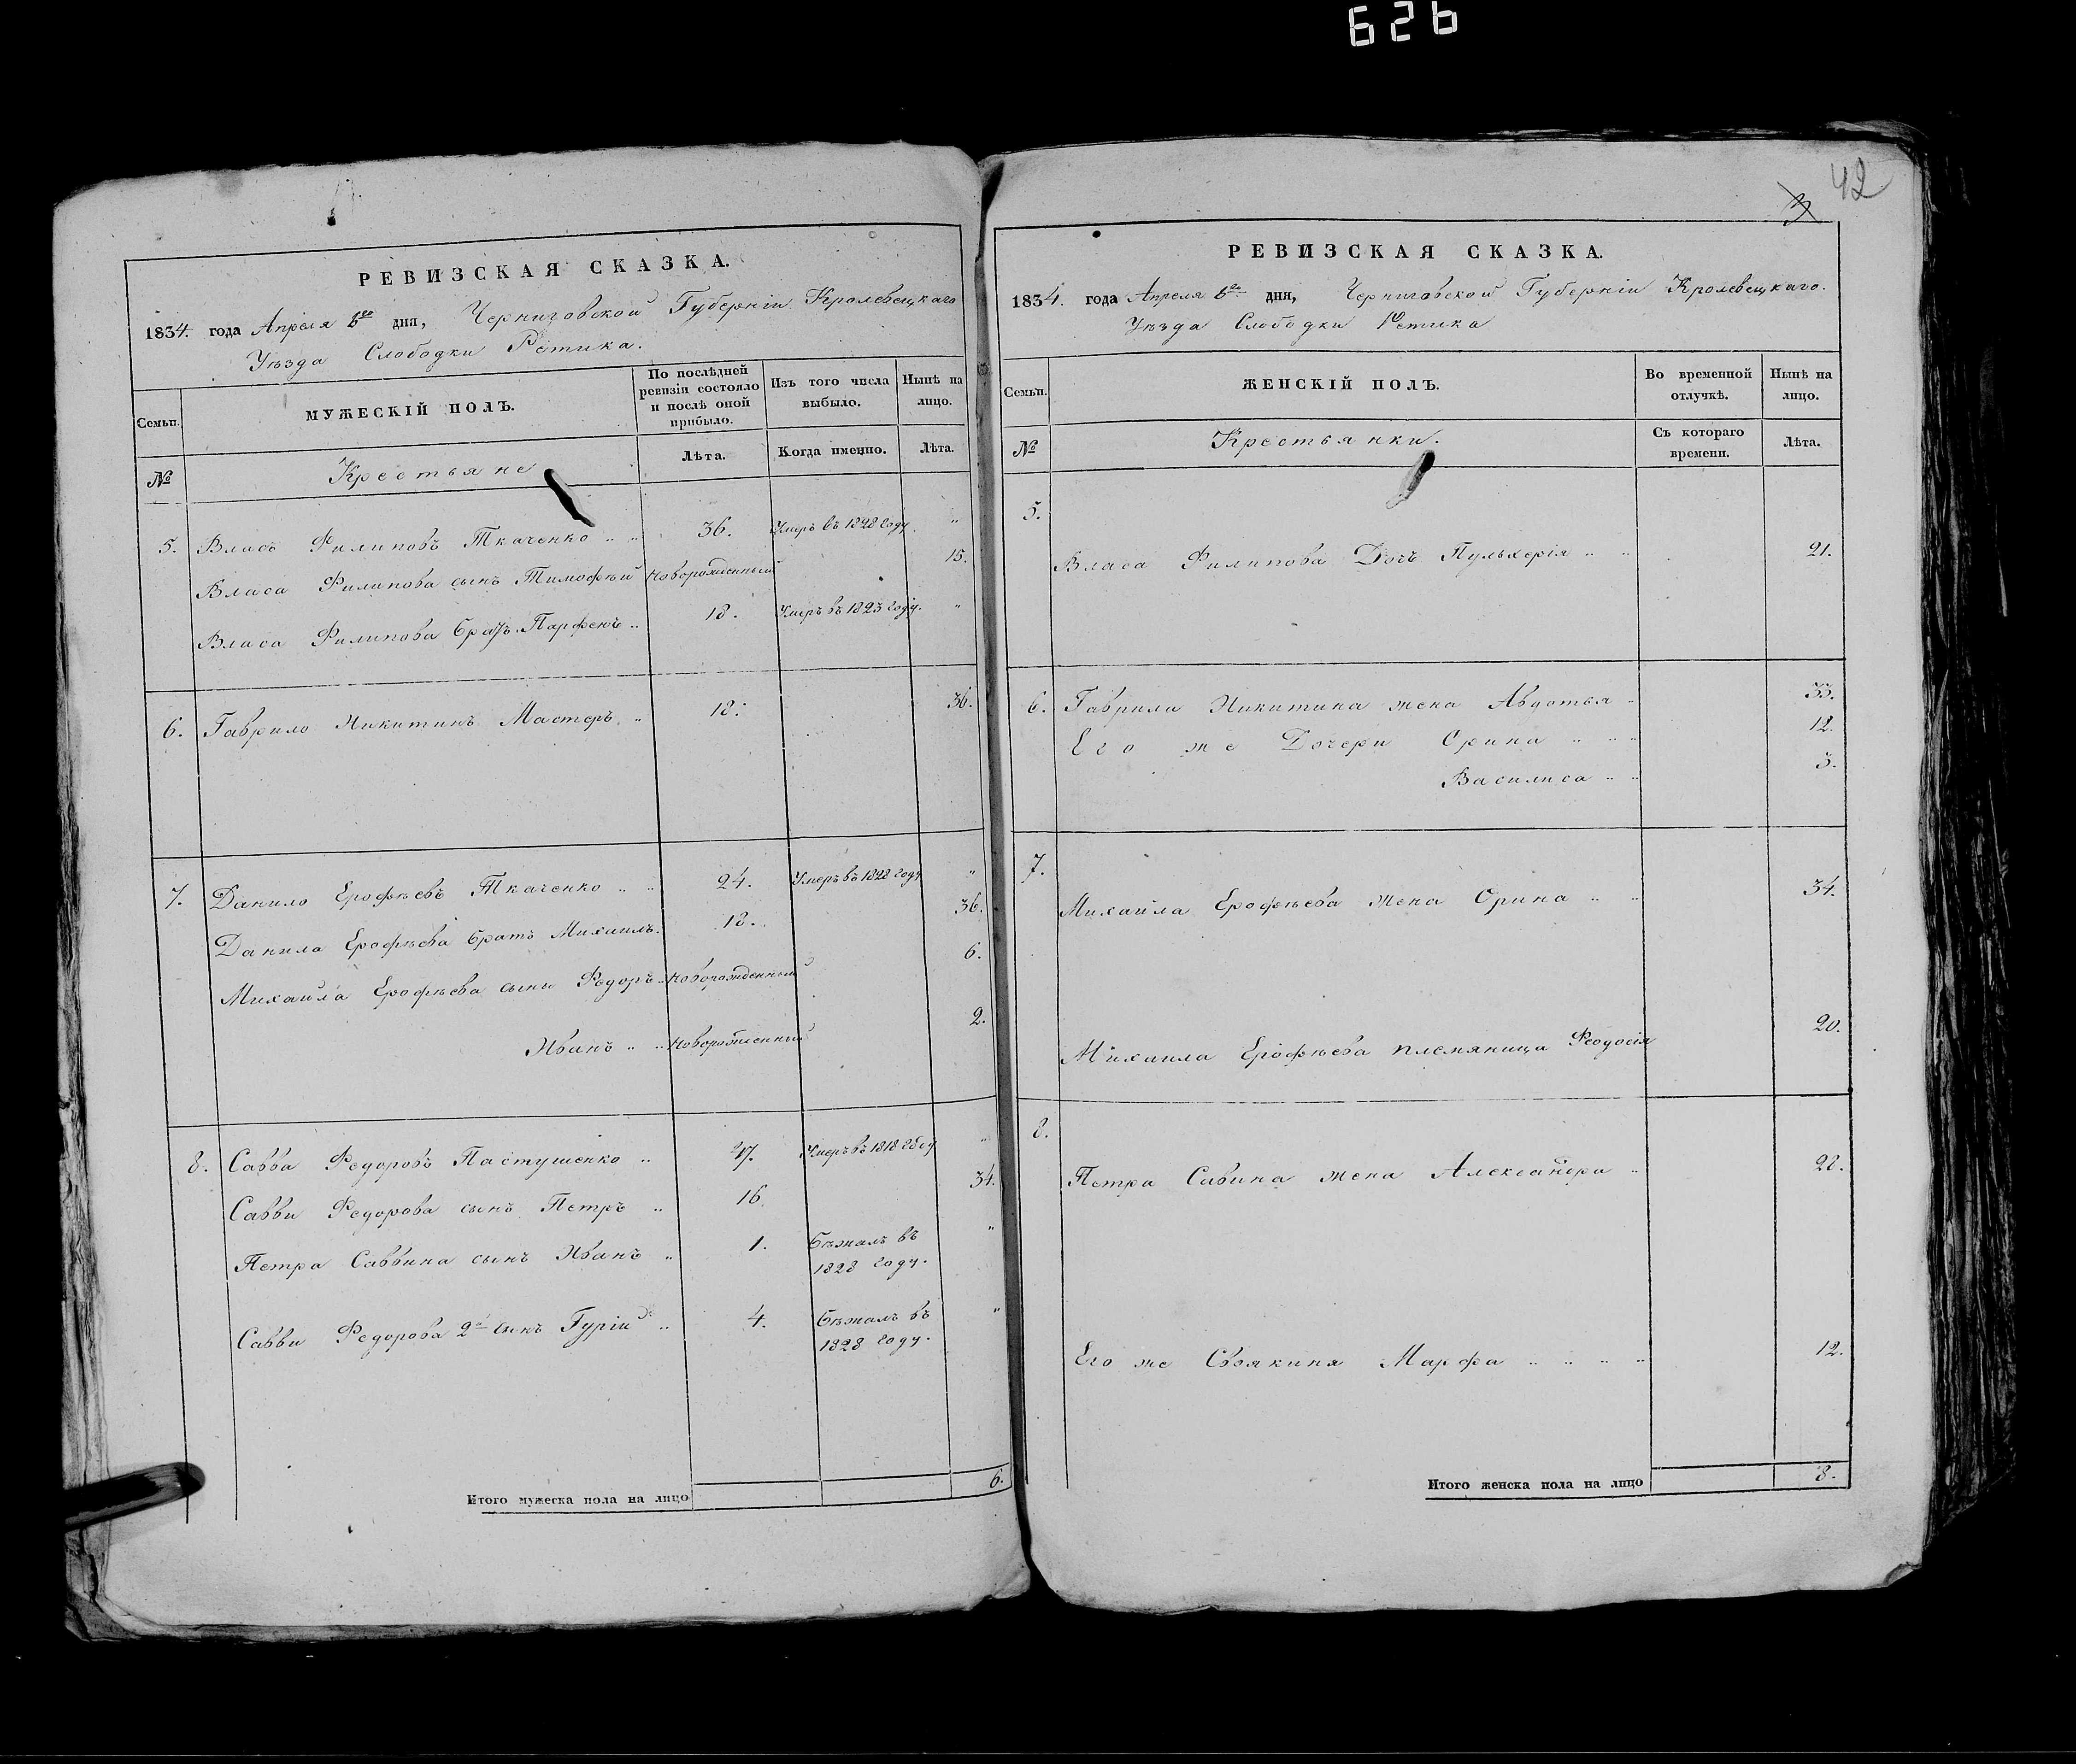 626
РЕВИЗСКАЯ СКАЗКА.
1834. года Апреля 6го дня, Черниговской Губерніи Кролевецкаго
Уѣзда Слободки Ретика.
Семьи.
МУЖЕСКІЙ ПОЛЪ.
По послѣдней ревизіи состояло и послѣ оной прибыло.
Изъ того числа выбыло.
Нынѣ на лицо.
№ Крестьяне
Лѣта. Когда именно. Лѣта.
5. Власъ Филиповъ Ткаченко „ „ 36. Умеръ въ 1828 году „
Власа Филипова сынъ Тимофѣй Новорожденный 15.
Власа Филипова братъ Парфенъ „ 18. Умеръ въ 1823 году. „
6. Гаврило Никитинъ Мастеръ „ 18. 36.
7. Данило Ерофѣевъ Ткаченко „ „ 24. Умеръ въ 1828 году „
Данила Ерофѣева братъ Михаилъ. 18. 36.
Михайла Ерофѣева сыны Ѳедоръ „ Новорожденный 6.
Иванъ „ „ Новорожденный 2.
8. Савва Федоровъ Пастушенко „ 47. Умеръ въ 1818 году „
Савви Федорова сынъ Петръ „ 16 34.
Петра Саввина сынъ Иванъ „ 1. Бѣжалъ въ „
1828 году.
Савви Федорова 2й сынъ Гурій „ 4. Бѣжалъ въ „
1828 году.
Итого мужеска пола на лицо 6.
42
3
РЕВИЗСКАЯ СКАЗКА.
1834. года Апреля 6го дня, Черниговской Губерніи Кролевецкаго.
Уѣзда Слободки Ретика
Семьи.
ЖЕНСКІЙ ПОЛЪ.
Во временной отлучкѣ.
Нынѣ на лицо.
№ Крестьянки.
Съ котораго времени.
Лѣта.
5.
Власа Филипова Дочь Пульхерія „ „ 21.
6. Гаврила Никитина жена Авдотья „ 33.
Его же Дочери Орина „ „ „ 12.
Василиса „ „ 3.
7.
Михайла Ерофѣева жена Орина „ „ 34.
Михаила Ерофѣева племяница Феодосія 20.
8.
Петра Савина жена Александра „ 28.
Его же Своякиня Марфа „ „ „ „ 12.
Итого женска пола на лицо 8.